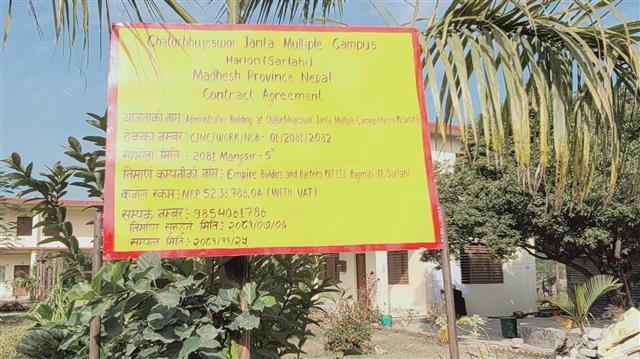 Chaturbhujeswor Janta Multiple Campus
Harion (Sarlahi)
Madhesh Province Nepal
Contract Agreement
योजनाको नाम: Administrative Building at Chaturbhujeswor Janta Multiple Campus
ठेक्का नम्बर: CJMC/WORK/NCB- 01/2081/2082
सम्झौता मिति: 2081 Mangsir - 5
निर्माण कम्पनीको नाम: Empire Builders and Barters PVT.LTD. Bagmati-11, Sarlahi
कबोल रकम: NRP 52,38,786.04 (WITH VAT)
सम्पर्क नम्बर: 9854061786
निर्माण सुरुहुने मिति: २०८१/०७/०६
सम्पन्न मिति: २०८१/११/२५